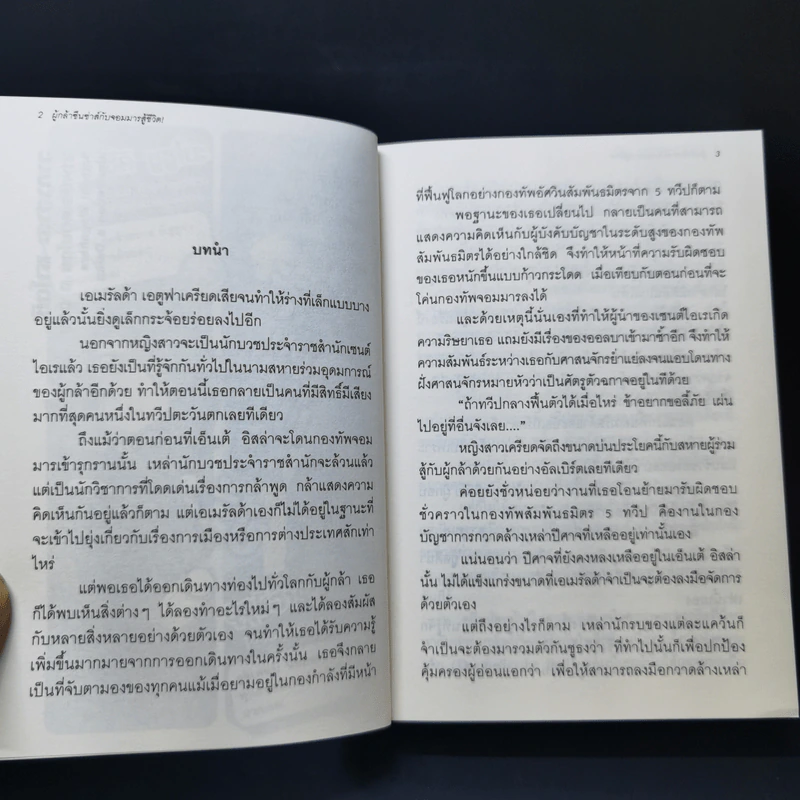 2 ผู้กล้าซึนซ่าส์กับจอมมารสู้ชีวิต!
บทนำ
เอเมรัลด้า เอตูฟาเครียดเสียจนทำให้ร่างที่เล็กแบบบาง
อยู่แล้วนั้นยิ่งดูเล็กกระจ้อยร่อยลงไปอีก
นอกจากหญิงสาวจะเป็นนักบวชประจำราชสำนักเซนต์
ไอเรแล้ว เธอยังเป็นที่รู้จักกันทั่วไปในนามสหายร่วมอุดมการณ์
ของผู้กล้าอีกด้วย ทำให้ตอนนี้เธอกลายเป็นคนที่มีสิทธิ์มีเสียง
มากที่สุดคนหนึ่งในทวีปตะวันตกเลยทีเดียว
ถึงแม้ว่าตอนก่อนที่เอ็นเต้ อิสล่าจะโดนกองทัพจอม
มารเข้ารุกรานนั้น เหล่านักบวชประจำราชสำนักจะล้วนแล้ว
แต่เป็นนักวิชาการที่โดดเด่นเรื่องการกล้าพูด กล้าแสดงความ
คิดเห็นกันอยู่แล้วก็ตาม แต่เอเมรัลด้าเองก็ไม่ได้อยู่ในฐานะที่
จะเข้าไปยุ่งเกี่ยวกับเรื่องการเมืองหรือการต่างประเทศสักเท่า
ไหร่
แต่พอเธอได้ออกเดินทางท่องไปทั่วโลกกับผู้กล้า เธอ
ก็ได้พบเห็นสิ่งต่างๆ ได้ลองทำอะไรใหม่ๆ และได้ลองสัมผัส
กับหลายสิ่งหลายอย่างด้วยตัวเอง จนทำให้เธอได้รับความรู้
เพิ่มขึ้นมากมายจากการออกเดินทางในครั้งนั้น เธอจึงกลาย
เป็นที่จับตามองของทุกคนแม้เมื่อยามอยู่ในกองกำลังที่มีหน้า
3
ที่ฟื้นฟูโลกอย่างกองทัพอัศวินสัมพันธมิตรจาก 5 ทวีปก็ตาม
พอฐานะของเธอเปลี่ยนไป กลายเป็นคนที่สามารถ
แสดงความคิดเห็นกับผู้บังคับบัญชาในระดับสูงของกองทัพ
สัมพันธมิตรได้อย่างใกล้ชิด จึงทำให้หน้าที่ความรับผิดชอบ
ของเธอหนักขึ้นแบบก้าวกระโดด เมื่อเทียบกับตอนก่อนที่จะ
โค่นกองทัพจอมมารลงได้
และด้วยเหตุนี้นั่นเองที่ทำให้ผู้นำของเซนต์ไอเรเกิด
ความริษยาเธอ แถมยังมีเรื่องของออลบาเข้ามาซ้ำอีก จึงทำให้
ความสัมพันธ์ระหว่างเธอกับศาสนจักรย่ำแย่ลงจนแอบโดนทาง
ฝั่งศาสนจักรหมายหัวว่าเป็นศัตรูตัวฉกาจอยู่ในทีด้วย
“ถ้าทวีปกลางฟื้นตัวได้เมื่อไหร่ ข้าอยากขอลี้ภัย เผ่น
ไปอยู่ที่อื่นจังเลย....”
หญิงสาวเครียดจัดถึงขนาดบ่นประโยคนี้กับสหายผู้ร่วม
สู้กับผู้กล้าด้วยกันอย่างอัลเบิร์ตเลยทีเดียว
ค่อยยังชั่วหน่อยว่างานที่เธอโอนย้ายมารับผิดชอบ
ชั่วคราวในกองทัพสัมพันธมิตร 5 ทวีป คืองานในกอง
บัญชาการกวาดล้างเหล่าปีศาจที่เหลืออยู่เท่านั้นเอง
แน่นอนว่า ปีศาจที่ยังคงหลงเหลืออยู่ในเอ็นเต้ อิสล่า
นั้น ไม่ได้แข็งแกร่งขนาดที่เอเมรัลด้าจำเป็นจะต้องลงมือจัดการ
ด้วยตัวเอง
แต่ถึงอย่างไรก็ตาม เหล่านักรบของแต่ละแคว้นก็
จำเป็นจะต้องมารวมตัวกันชูธงว่า ที่ทำไปนั้นก็เพื่อปกป้อง
คุ้มครองผู้อ่อนแอกว่า เพื่อให้สามารถลงมือกวาดล้างเหล่า